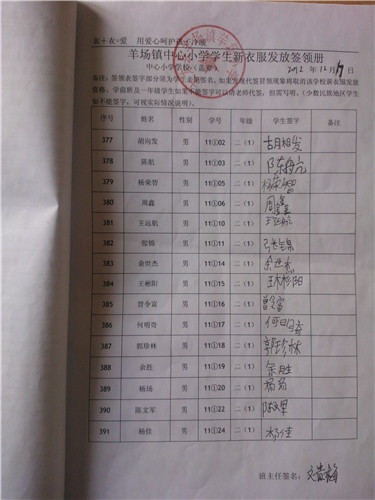 衣+衣=爱 用爱心呵护
羊场镇中心小学学生新衣服发放签领册
中心小学学校(盖章) 2012年12月17日
备注:签领表签字部分须为学生亲笔签名,如果发现代签冒领现象将取消该学校新衣服发放
资格,学前班及一年级学生如果不能签字可以请老师代签,但需写明。(少数民族地区学生
如不能签字,可视实际情况说明)。
序号 姓名 性别 学号 年级 学生签字 备注
377 胡向发 男 11①02 二(1) 胡相发
378 陈航 男 11①03 二(1) 陈航
379 杨荣智 男 11①05 二(1) 杨荣智
380 周鑫 男 11①06 二(1) 周鑫
381 王远航 男 11①10 二(1) 王远航
382 张锦 男 11①11 二(1) 张锦
383 余世杰 男 11①14 二(1) 余世杰
384 王彬阳 男 11①15 二(1) 王彬阳
385 曾令富 男 11①16 二(1) 曾令富
386 何明奇 男 11①17 二(1) 何明奇
387 郭珍林 男 11①18 二(1) 郭珍林
388 余胜 男 11①19 二(1) 余胜
389 杨场 男 11①20 二(1) 杨场
390 陈文军 男 11①22 二(1) 陈文军
391 杨佳 男 11①24 二(1) 杨佳
班主任签名: